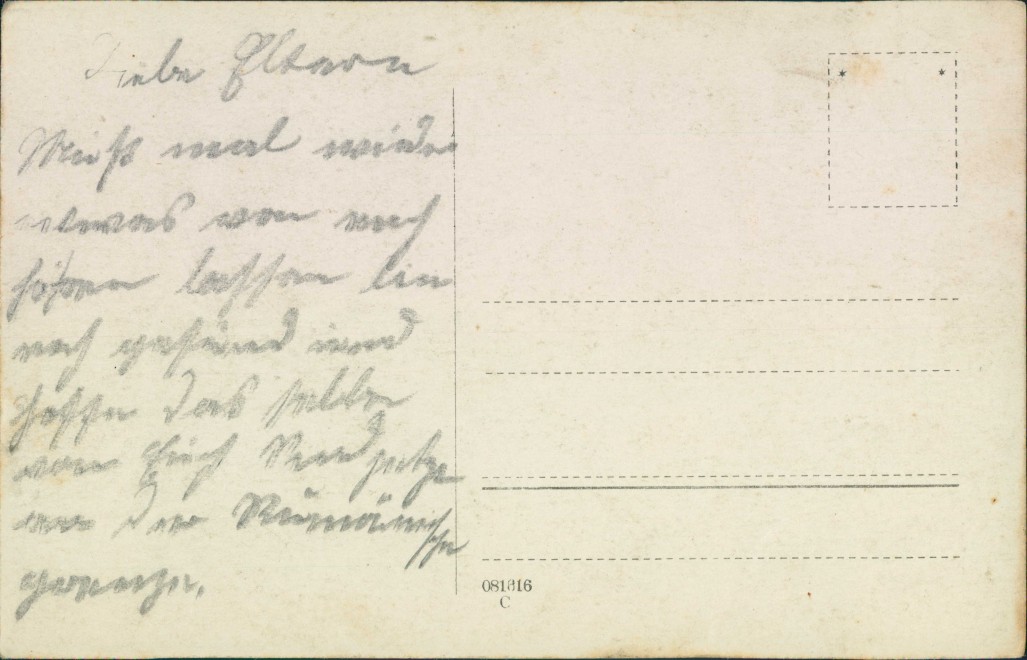 Liebe Eltern
Muß mal wieder
etwas von mich
hören lassen bin
noch gesund und
hoffe das selbe
von Euch Sind jetze
an der Rumänische
grenze.
081616
C